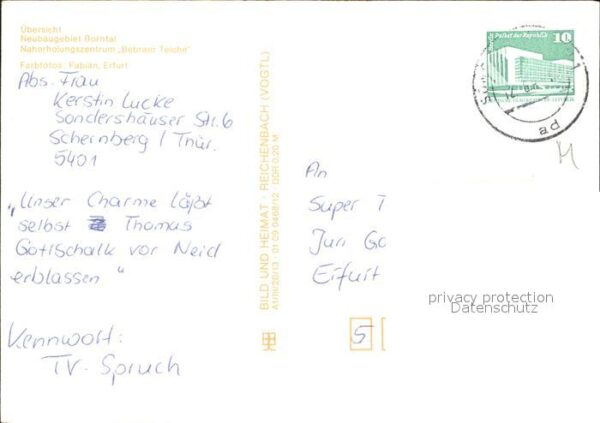 Übersicht
Neubaugebiet Borntal
Naherholungszentrum „Bebraer Teiche"
Farbfotos: Fabian, Erfurt
Abs. Frau
Kerstin Lucke
Sondershäuser Str. 6
Schernberg / Thür.
5401
„Unser Charme läßt
selbst Thomas
Gottschalk vor Neid
erblassen"
Kennwort:
TV-Spruch
BILD UND HEIMAT · REICHENBACH (VOGTL)
A1/III/26/13 · 01 09 0468/12 · DDR 0,20 M
Palast der Republik
10
An
Super T
Juri Ga
Erfurt
5
privacy protection
Datenschutz